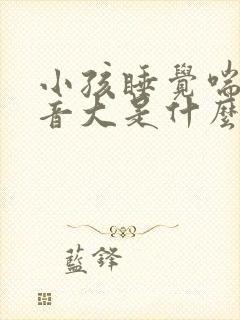 小孩睡覺喘
音大是什麼
藍鋒